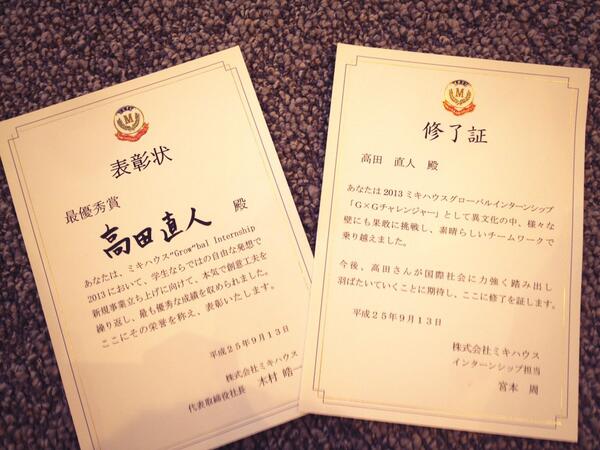 M
表彰状
最優秀賞
高田直人 殿
あなたは、ミキハウス"Grow"bal Internship
2013において、学生ならではの自由な発想で
新規事業立ち上げに向けて、本気で創意工夫を
繰り返し、最も優秀な成績を収められました。
ここにその栄誉を称え、表彰いたします。
平成25年9月13日
株式会社ミキハウス
代表取締役社長 木村 皓一
M
修了証
高田 直人 殿
あなたは2013ミキハウスグローバルインターンシップ
「G×Gチャレンジャー」として異文化の中、様々な
壁にも果敢に挑戦し、素晴らしいチームワークで
乗り越えました。
今後、高田さんが国際社会に力強く踏み出し
羽ばたいていくことに期待し、ここに修了を証します。
平成25年9月13日
株式会社ミキハウス
インターンシップ担当
宮本 周